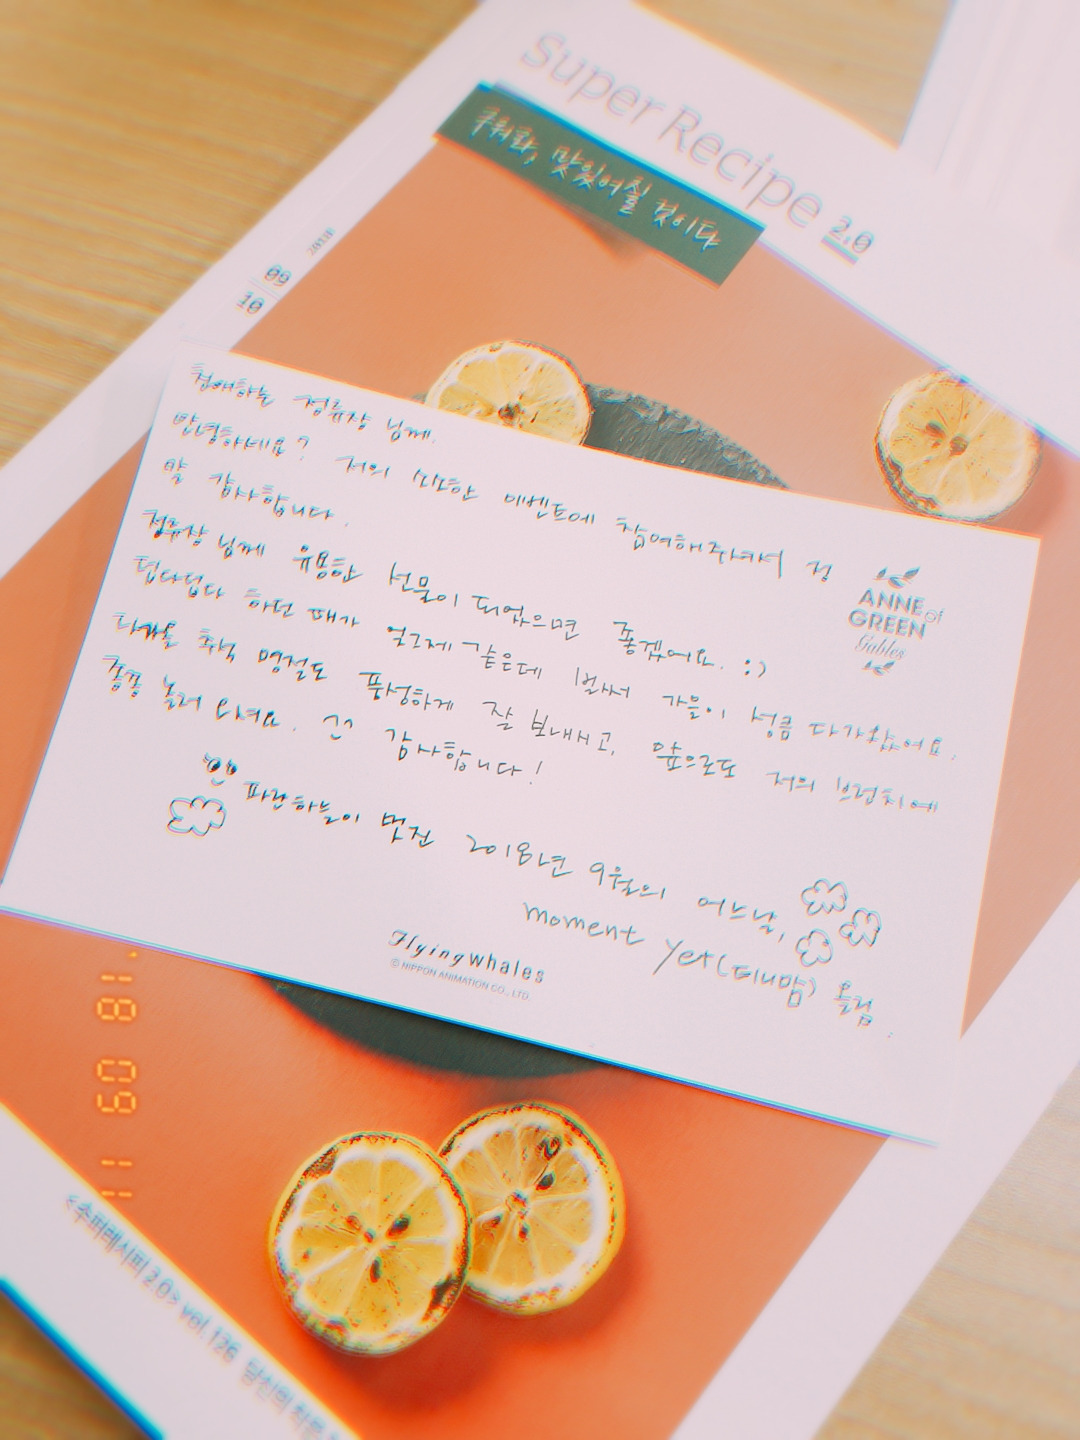 Super Recipe 2.0
구워라, 맛있어질 것이다
2018
09
10
친애하는 정류장 님께.
안녕하세요? 저의 소소한 이벤트에 참여해주셔서 정
말 감사합니다.
정류장 님께 유용한 선물이 되었으면 좋겠어요. :)
덥다덥다 하던 때가 엊그제 같은데 벌써 가을이 성큼 다가왔어요.
다가올 추석 명절도 풍성하게 잘 보내시고, 앞으로도 저의 브런치에
종종 놀러 오셔요. ^^ 감사합니다!
파란하늘이 멋진 2018년 9월의 어느날,
moment yet(디내맘) 올림.
ANNE of
GREEN
Gables
Flying Whales
© NIPPON ANIMATION CO., LTD.
11 09 '18
<수퍼레시피 2.0> vol.126 당신의